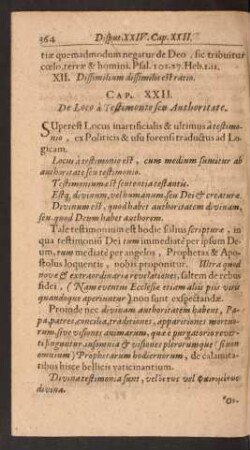 364 Disput. XXIV. Cap. XXII.
tiæ quemadmodum negatur de Deo, sic tribuitur
cœlo, terræ & homini. Psal. 101.27. Heb.1.11.
XII. Dissimilium dissimilis est ratio.
CAP. XXII.
De Loco à Testimonio seu Authoritate.
SUperest Locus inartificialis & ultimus à testimo-
nio, ex Politicis & usu forensi traductus ad Lo-
gicam.
Locus à testimonio est, cum medium sumitur ab
authoritate seu testimonio.
Testimonium est sententia testantis.
Estq, divinum, vel humanum, seu Dei & creaturæ.
Divinum est, quod habet authoritatem divinam,
seu quod Deum habet authorem.
Tale testimonium est hodie solius scripturæ, in
qua testimonia Dei tum immediatè per ipsum De-
um, tum mediatè per angelos, Prophetas & Apo-
stolos loquentis, nobis proponitur.
nove & extraordinariæ revelationes, saltem de rebus
fidei, (Nam eventus Ecclesiæ etiam aliis piis viris
quandoque aperiuntur) non sunt expectandæ.
Proinde nec divinam authoritatem habent, Pa-
pa, patres, concilia, traditiones, apparitiones mortuo-
rum, sive visiones animarum, quæ è purgatorio rever-
ti finguntur, insomnia & visiones plerorumque (si non
omnium) Prophetarum hodiernorum, de calamita-
tibus hisce bellicis vaticinantium.
Divina testimonia sunt, vel ὄντως vel φαινομένως
divina.